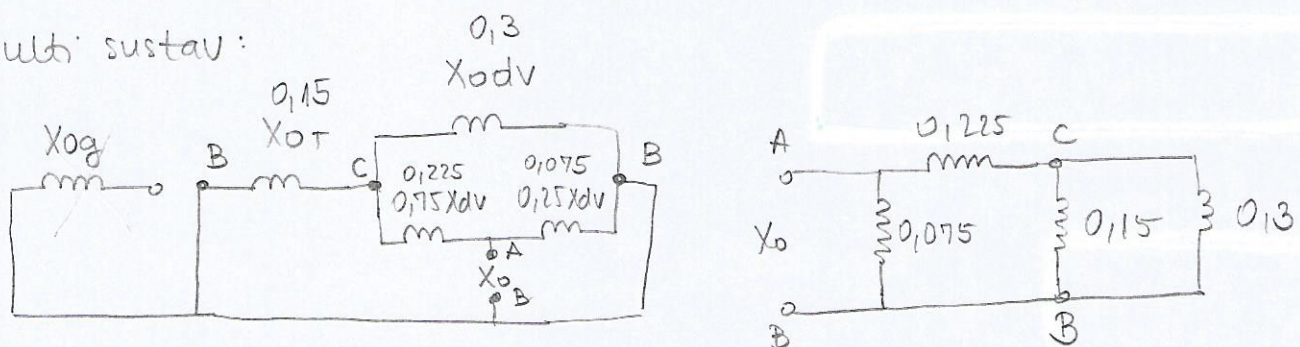 ulti sustav:
0,3
X0dv
0,15
X0T
X0g
B
C
0,225
0,75Xdv
0,075
0,25Xdv
B
A
X0
B
A
0,225
C
X0
0,075
0,15
0,3
B
B